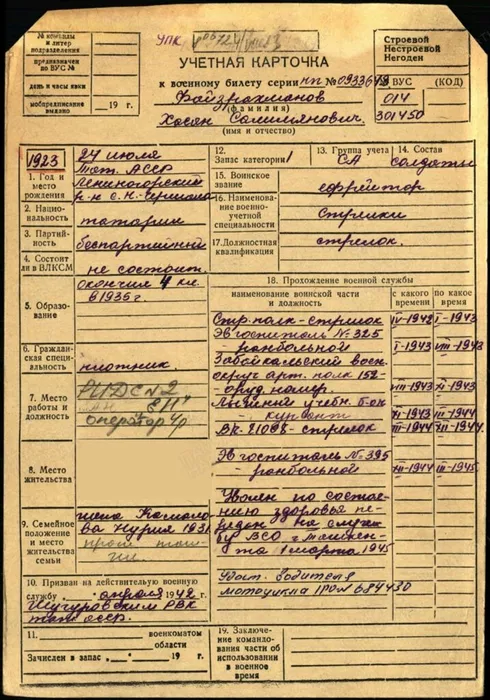 № команды
и литер
подразделения
предназначен
по ВУС №
день и часы явки
мобпредписания
выдано 19 г.
УПК
Строевой
Нестроевой
Негоден
УЧЕТНАЯ КАРТОЧКА
к военному билету серии нп № 0933648
Файзрахманов
(фамилия)
Хасян
(имя и отчество)
ВУС (КОД)
014
301450
1923
24 июля
Тат. АССР
Лениногорский
р-н с.
1. Год и
место
рождения
2. Национальность
татарин
3. Партийность
беспартийный
4. Состоит
ли в ВЛКСМ
не состоит
5. Образование
окончил 4 кл.
в 1935 г.
6. Гражданская специальность
плотник
7. Место
работы и
должность
оператор 4р
8. Место
жительства
9. Семейное
положение и
место
жительства
семьи
жена
Нурия 1931
10. Призван на действительную военную
службу апреля 1942 г.
Шугуровским РВК
тат. асср.
11. военкоматом
области
Зачислен в запас 19 г.
12.
Запас категории 1
13. Группа учета
СА
14. Состав
солдаты
15. Воинское
звание
ефрейтор
16. Наименование
военно-
учетной
специальности
Стрелки
17. Должностная
квалификация
стрелок
18. Прохождение военной службы
наименование воинской части
и должность
с какого
времени
по какое
время
Стр. полк - стрелок IV-1942 I-1943
Эвгоспиталь № 325
ранбольной I-1943 VII-1943
Забайкальский воен.
округ арт. полк 152-
оруд. номер. VII-1943 XI-1943
учебн. б-он
- курсант XI-1943 III-1944
ВЧ - стрелок III-1944 XII-1944
Эвгоспиталь № 395
- ранбольной XII-1944 III-1945
Уволен по состоянию
здоровья
передан на службу
ВСО г.
1 марта 1945
Удост. водителя
мотоцикла № 684430
19. Заключение
командования
части об
использовании
в военное
время